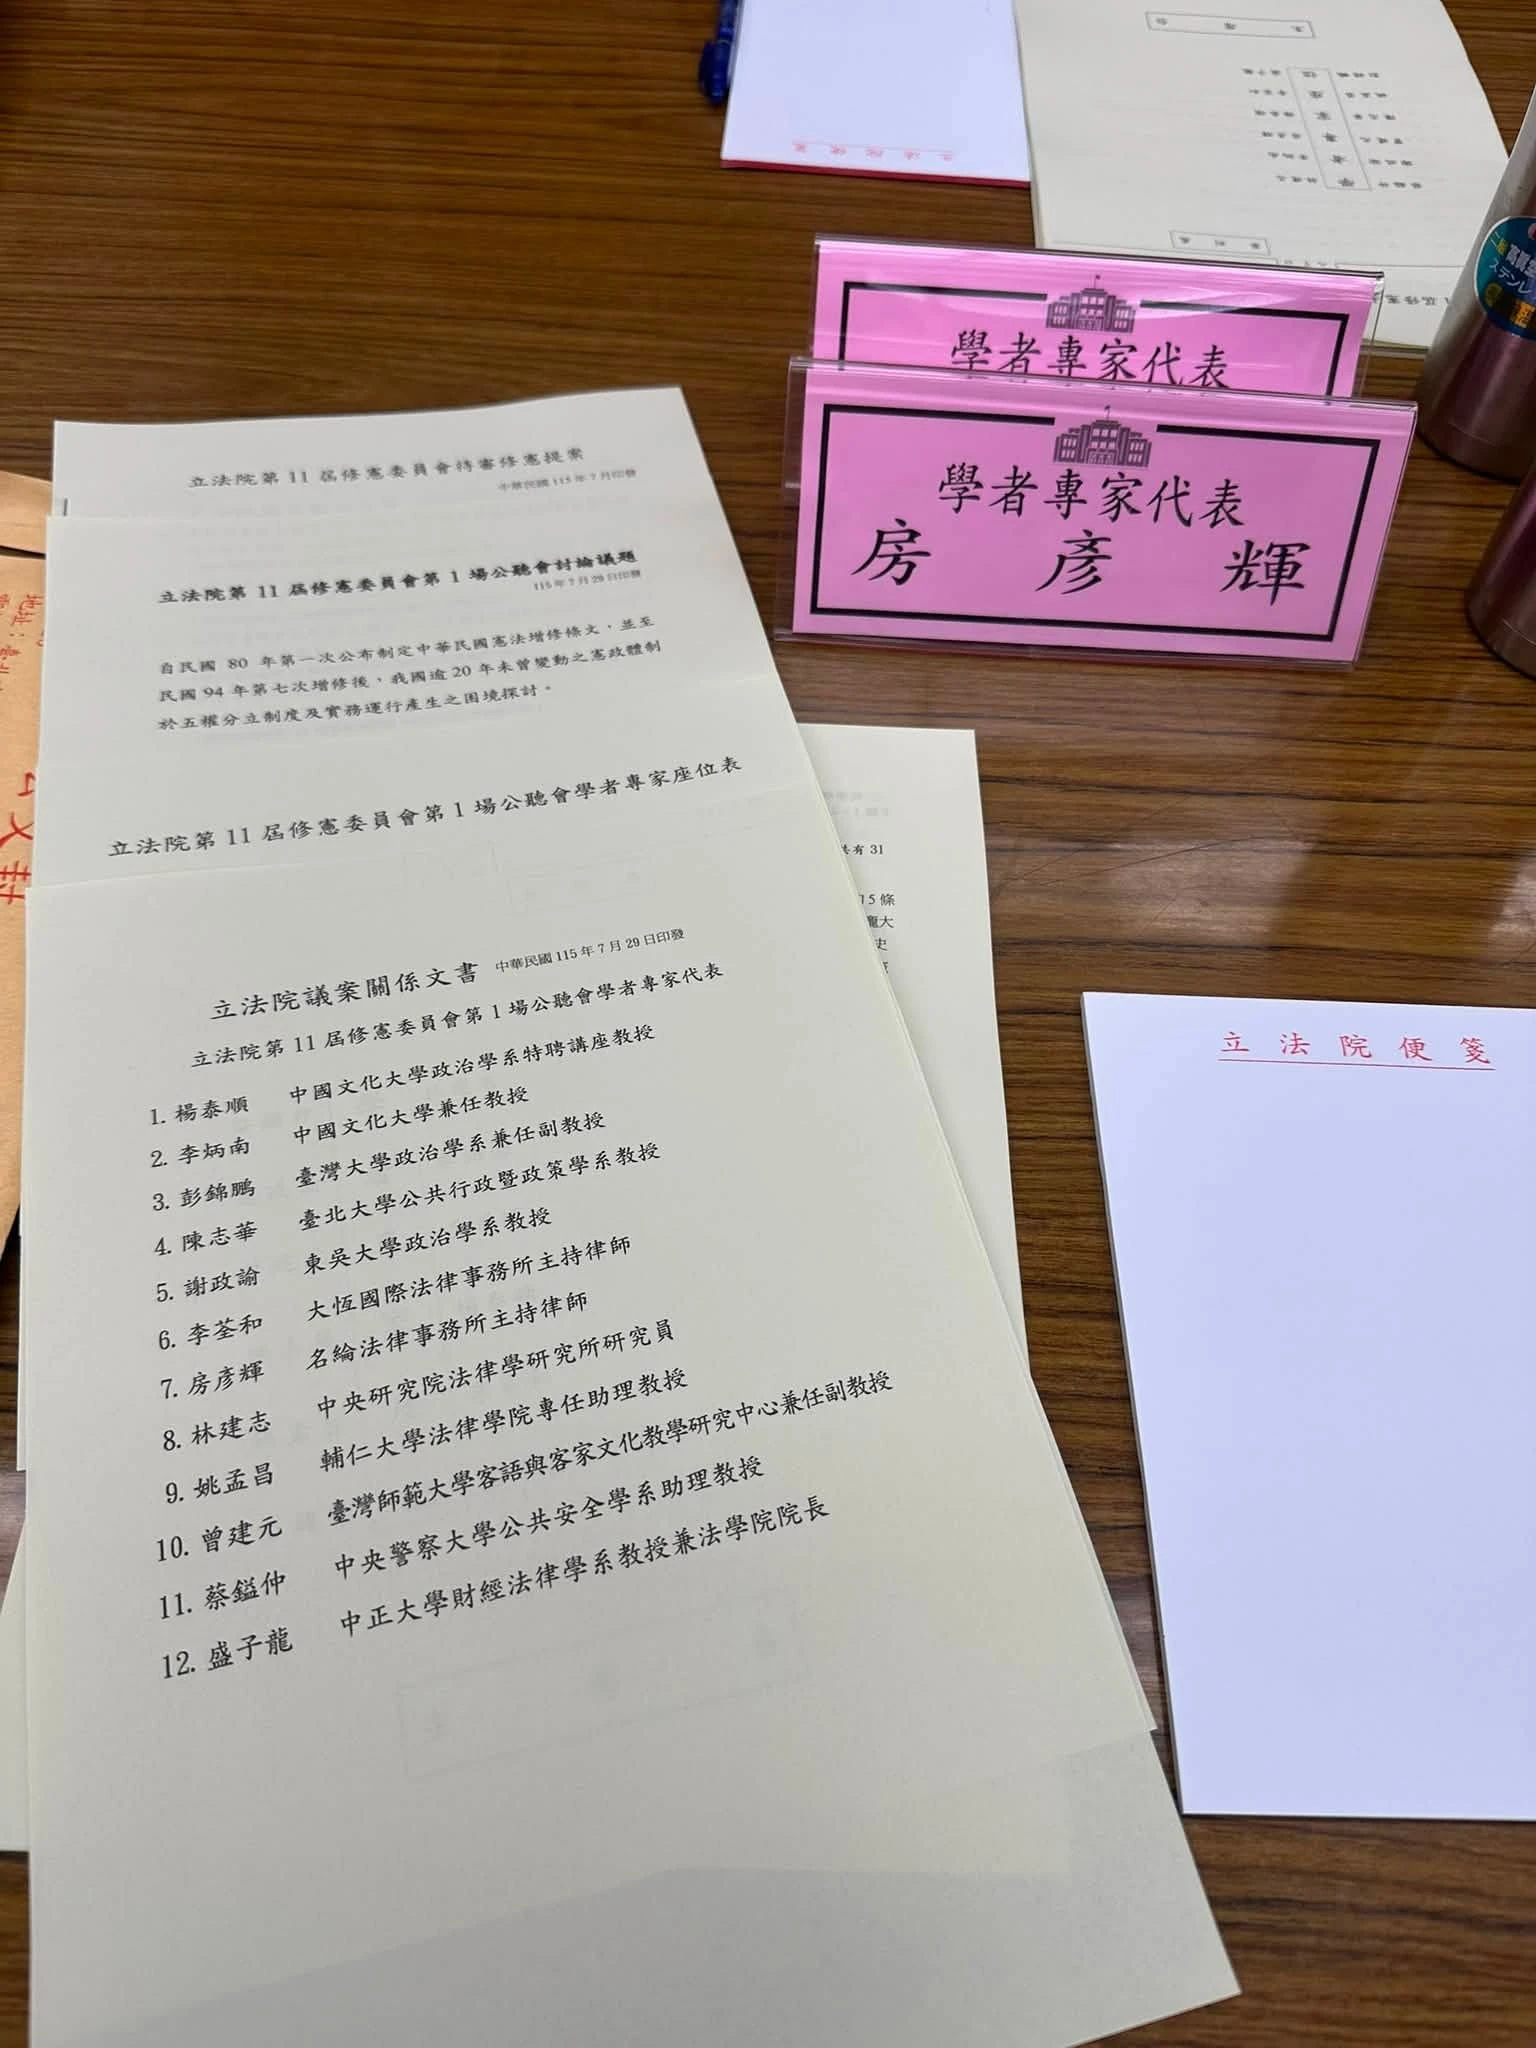 立法院便箋
學者專家座位
學者專家代表
學者專家代表
房彥輝
立法院第11屆修憲委員會待審修憲提案
中華民國115年7月印發
立法院第11屆修憲委員會第1場公聽會討論議題
115年7月29日印發
自民國 80 年第一次公布制定中華民國憲法增修條文，並至
民國94年第七次增修後，我國逾20年未曾變動之憲政體制
於五權分立制度及實務運行產生之困境探討。
立法院第11屆修憲委員會第1場公聽會學者專家座位表
共有31
15條
立法院議案關係文書 中華民國115年7月29日印發
立法院第11屆修憲委員會第1場公聽會學者專家代表
1. 楊泰順 中國文化大學政治學系特聘講座教授
2. 李炳南 中國文化大學兼任教授
3. 彭錦鵬 臺灣大學政治學系兼任副教授
4. 陳志華 臺北大學公共行政暨政策學系教授
5. 謝政諭 東吳大學政治學系教授
6. 李荃和 大恆國際法律事務所主持律師
7. 房彥輝 名綸法律事務所主持律師
8. 林建志 中央研究院法律學研究所研究員
9. 姚孟昌 輔仁大學法律學院專任助理教授
10. 曾建元 臺灣師範大學客語與客家文化教學研究中心兼任副教授
11. 蔡鎰仲 中央警察大學公共安全學系助理教授
12. 盛子龍 中正大學財經法律學系教授兼法學院院長
立法院便箋